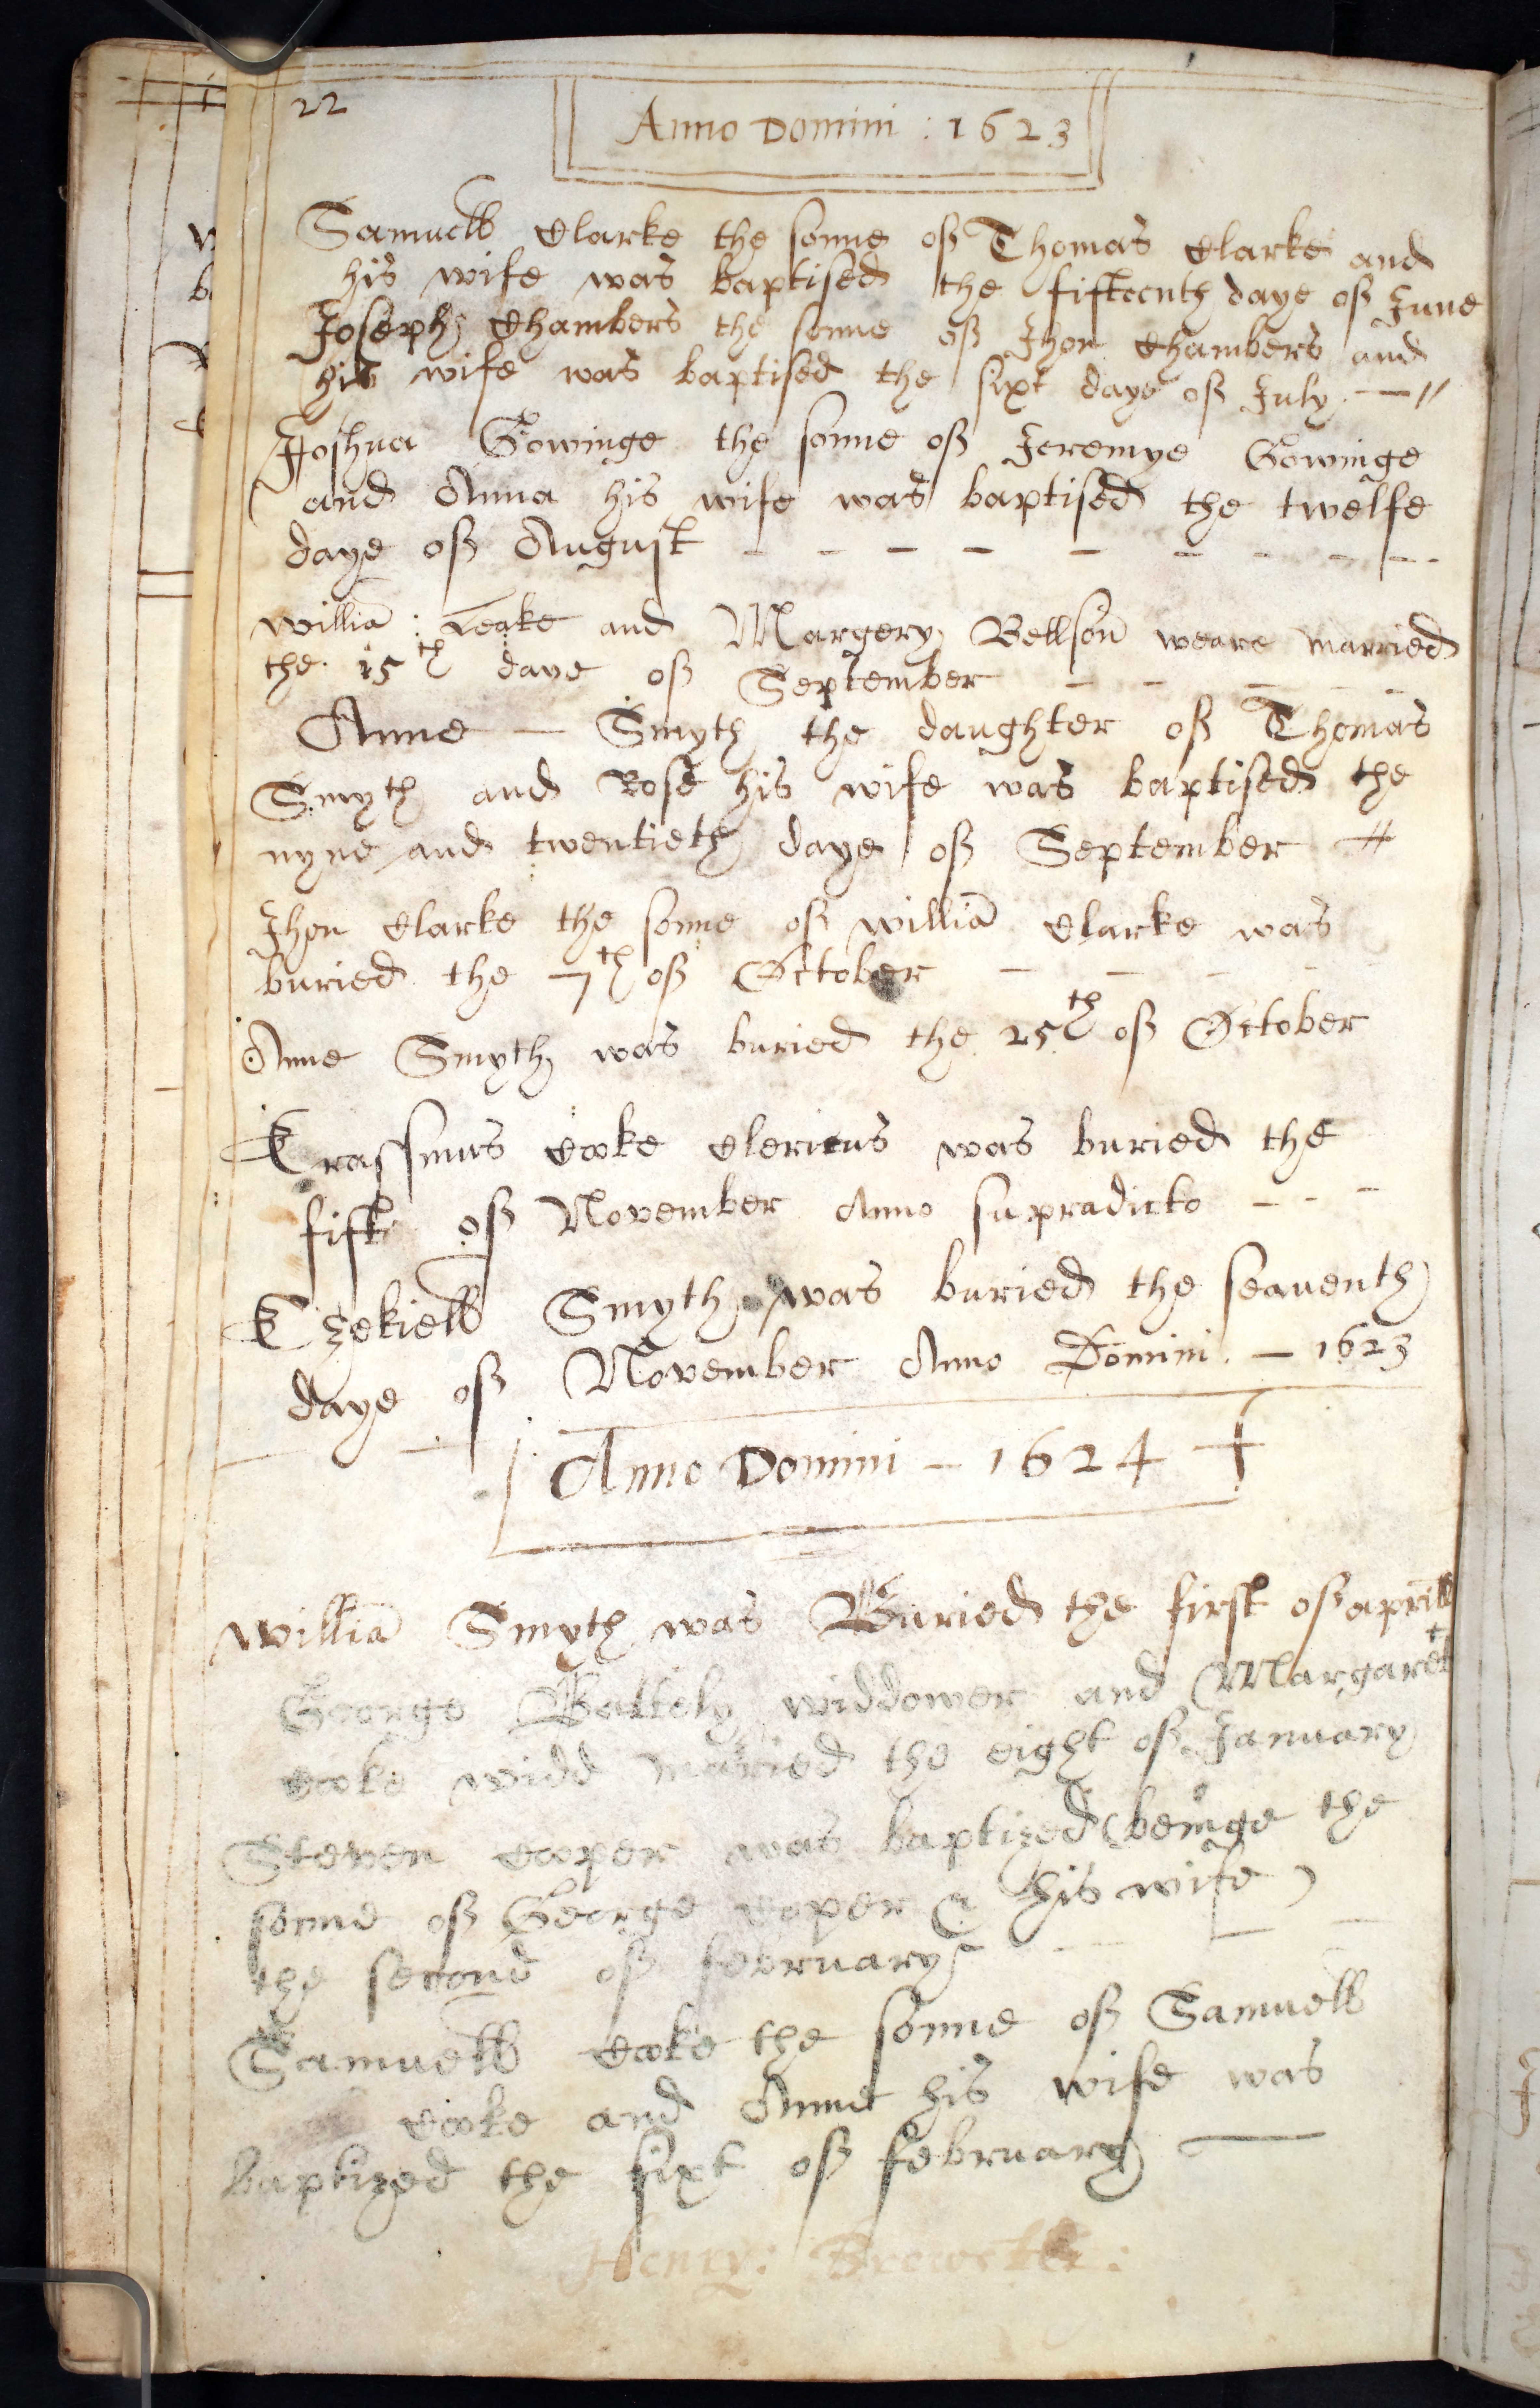 22
Anno Domini : 1623
Samuell Clarke the sonne of Thomas Clarke and
his wife was baptised the fifteenth daye of June
Joseph Chambers the sonne of Jhon Chambers and
his wife was baptised the sixt daye of July . — //
Joshua Gowinge the sonne of Jeremye Gowinge
and Anna his wife was baptised the twelfe
daye of August - - - - - - - - -
Williā : Leake and Margery Bellson weare married
the 15th daye of September - - - - -
Anne — Smyth the daughter of Thomas
Smyth and Rose his wife was baptised the
nyne and twentieth daye of September
Jhon Clarke the sonne of Williā Clarke was
buried the 7th of October - - - -
Anne Smyth was buried the 25th of October
Erassmus Cooke Clericus was buried the
fift of November Anno supradicto - - -
Ezekiell Smyth was buried the seaventh
daye of November Anno Domini . — 1623
Anno Domini — 1624
Williā Smyth was Buried the first of aprill
George Battely widdower and Margaret
Cooke widd maried the eight of January
Steven Cooper was baptized (beinge the
sonne of George Coper & his wife)
the second of february
Samuell Cooke the sonne of Samuell
Cooke and Anne his wife was
baptized the sixt of february —
Henry : Brewster :